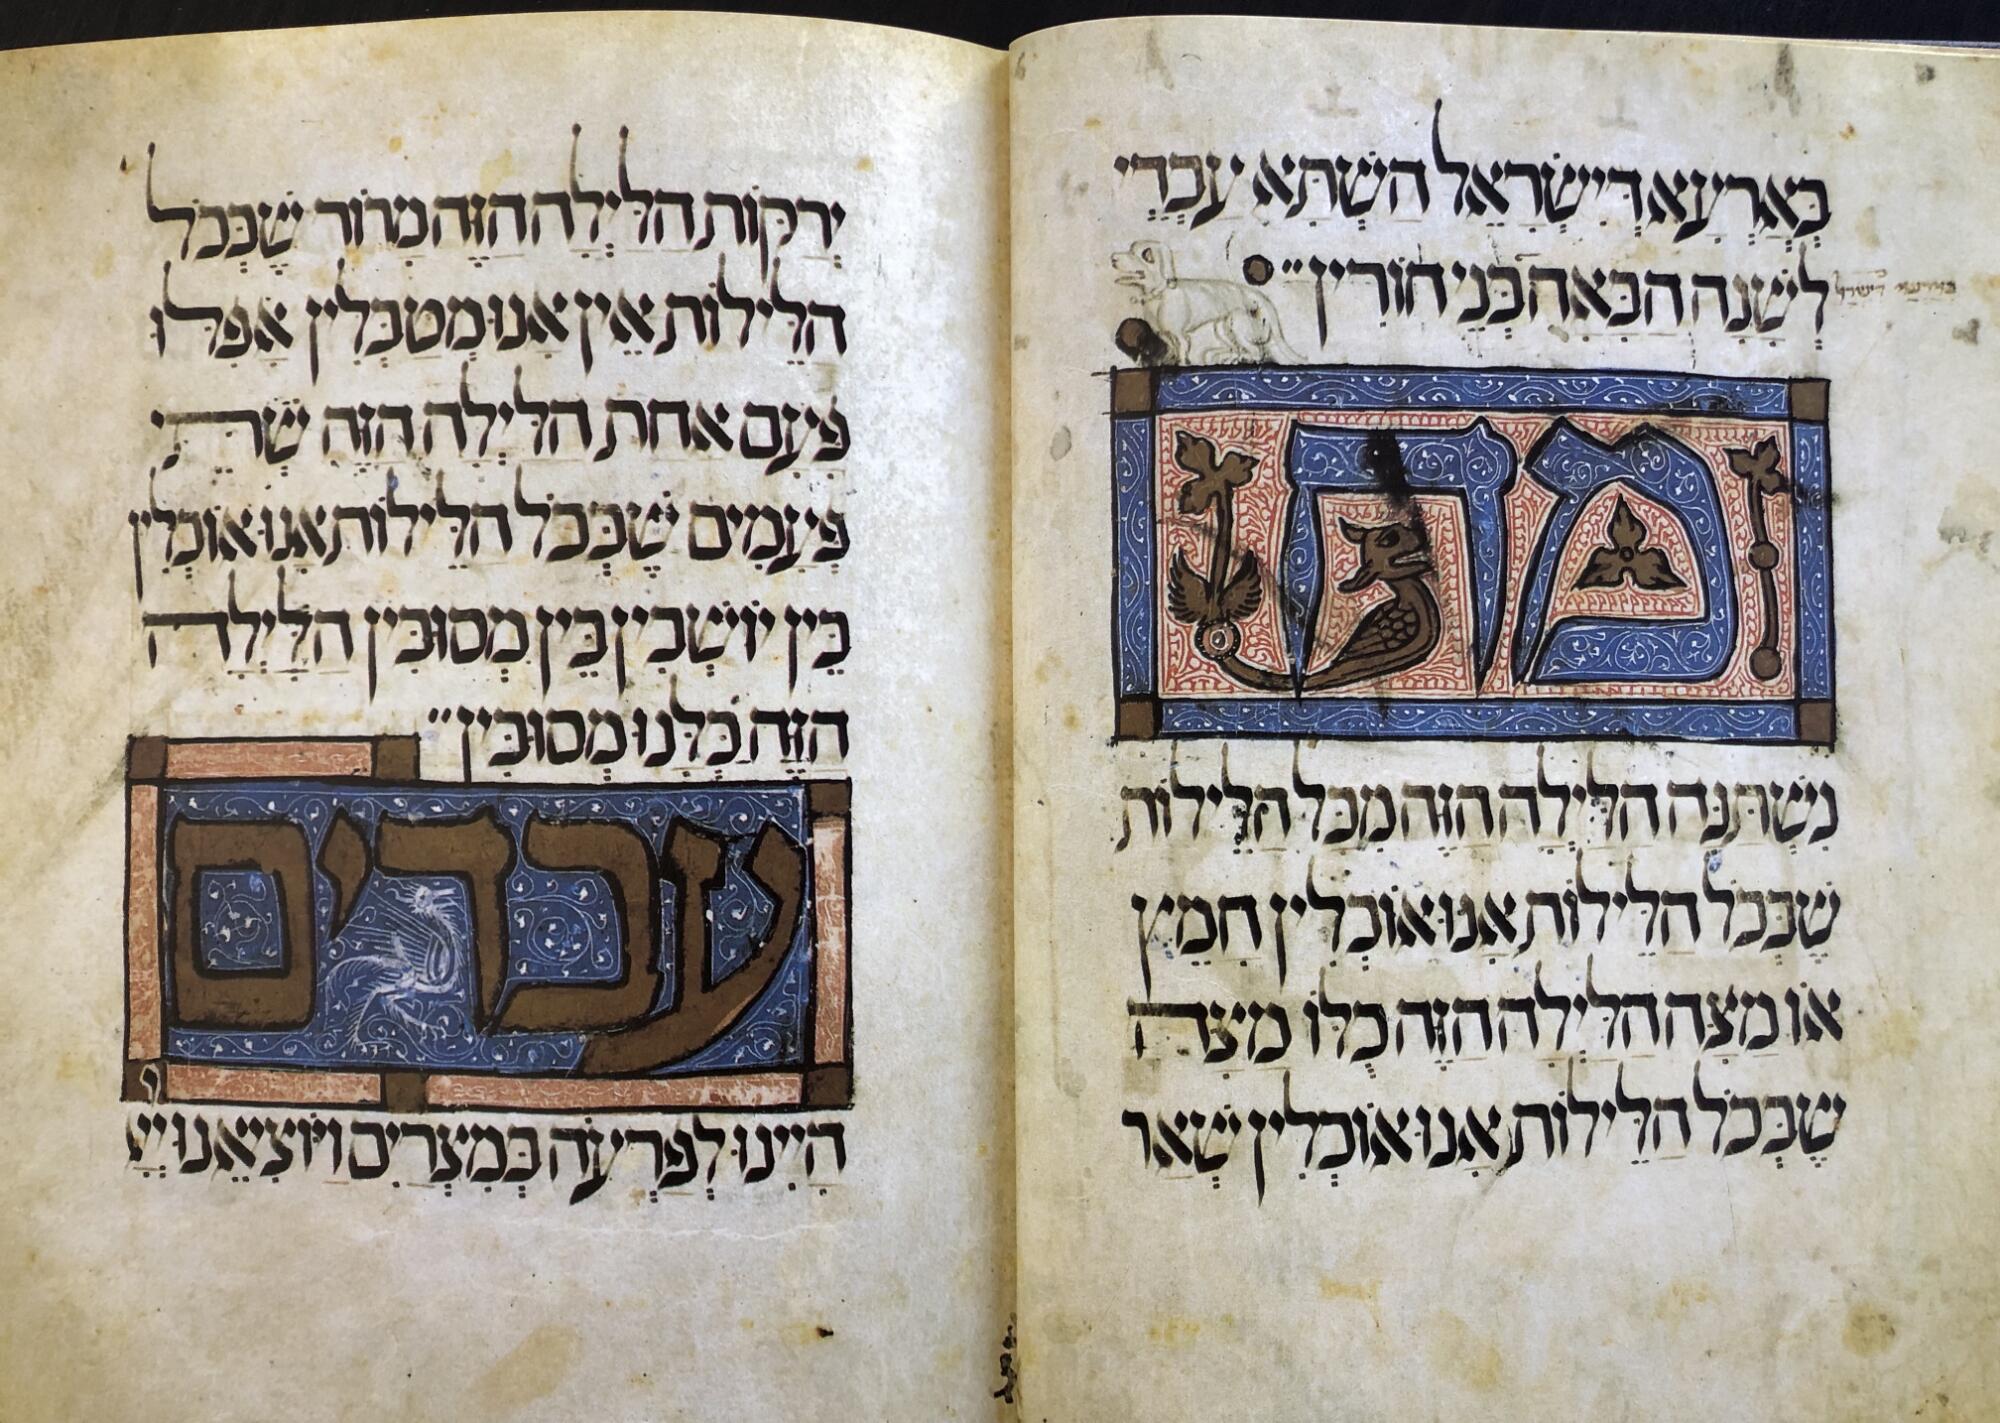 בְּאַרְעָא דְיִשְׂרָאֵל הָשַׁתָּא עַבְדֵי
לְשָׁנָה הַבָּאָה בְּנֵי חוֹרִין״
מה
נִשְׁתַּנָּה הַלַּיְלָה הַזֶּה מִכָּל הַלֵּילוֹת
שֶׁבְּכָל הַלֵּילוֹת אָנוּ אוֹכְלִין חָמֵץ
אוֹ מַצָּה הַלַּיְלָה הַזֶּה כֻּלּוֹ מַצָּה
שֶׁבְּכָל הַלֵּילוֹת אָנוּ אוֹכְלִין שְׁאָר
יְרָקוֹת הַלַּיְלָה הַזֶּה מָרוֹר שֶׁבְּכָל
הַלֵּילוֹת אֵין אָנוּ מְטַבְּלִין אֲפִלּוּ
פַּעַם אַחַת הַלַּיְלָה הַזֶּה שְׁתֵּי
פְּעָמִים שֶׁבְּכָל הַלֵּילוֹת אָנוּ אוֹכְלִין
בֵּין יוֹשְׁבִין בֵּין מְסוּבִּין הַלַּיְלָה
הַזֶּה כֻּלָּנוּ מְסוּבִּין״
עבדים
הָיִינוּ לְפַרְעֹה בְּמִצְרַיִם וַיּוֹצִיאֵנוּ יְיָ